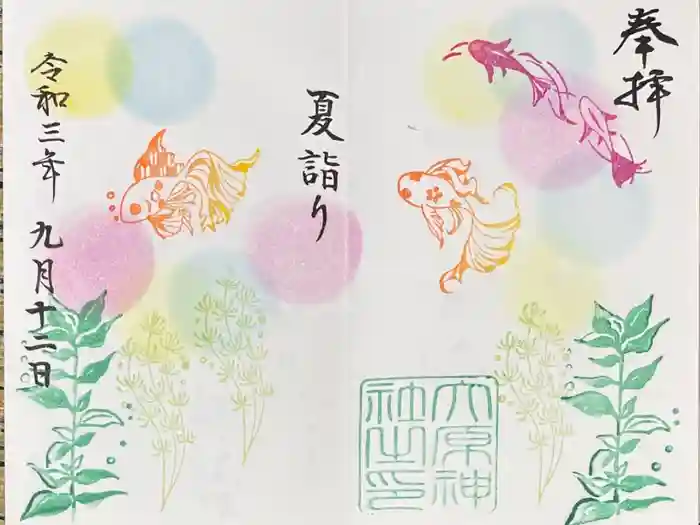 奉拝
夏詣り
令和三年 九月十二日
六原神社之印